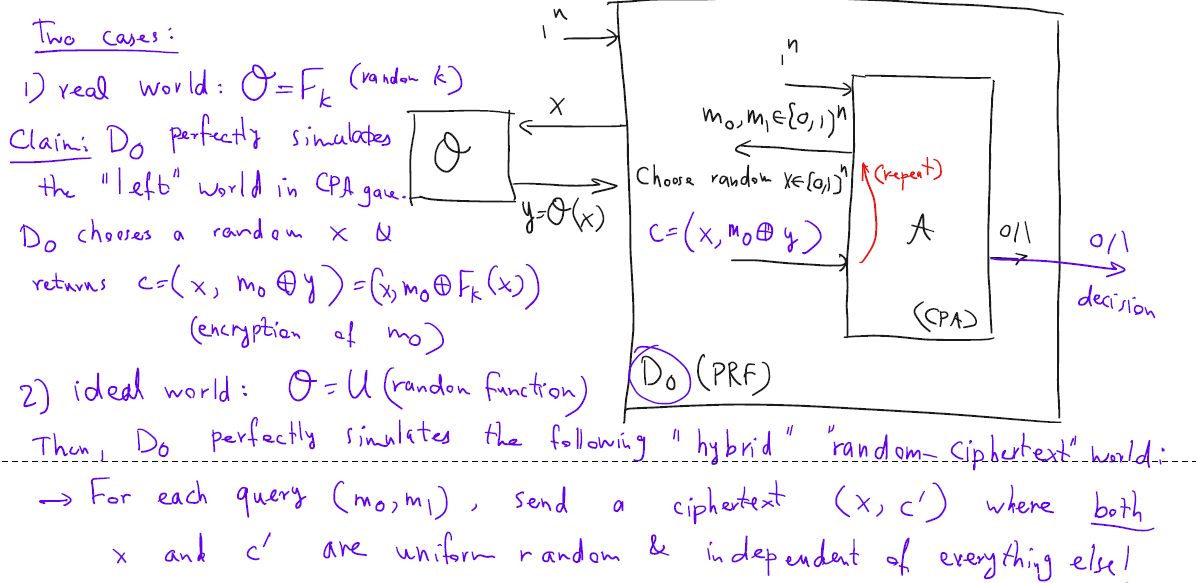 Two cases:
1) real world: O=F_k (random k)
Claim: D_0 perfectly simulates
the "left" world in CPA game.
D_0 chooses a random x &
returns c=(x, m_0 ⊕ y) = (x, m_0 ⊕ F_k(x))
(encryption of m_0)
1^n
x
O
y=O(x)
1^n
m_0, m_1 ∈ {0,1}^n
Choose random x∈{0,1}^n
(repeat)
c=(x, m_0 ⊕ y)
A
0/1
0/1
decision
(CPA)
D_0 (PRF)
2) ideal world: O = U (random function)
Then, D_0 perfectly simulates the following "hybrid" "random-ciphertext" world:
→ For each query (m_0, m_1), send a ciphertext (x, c') where both
x and c' are uniform random & independent of everything else!